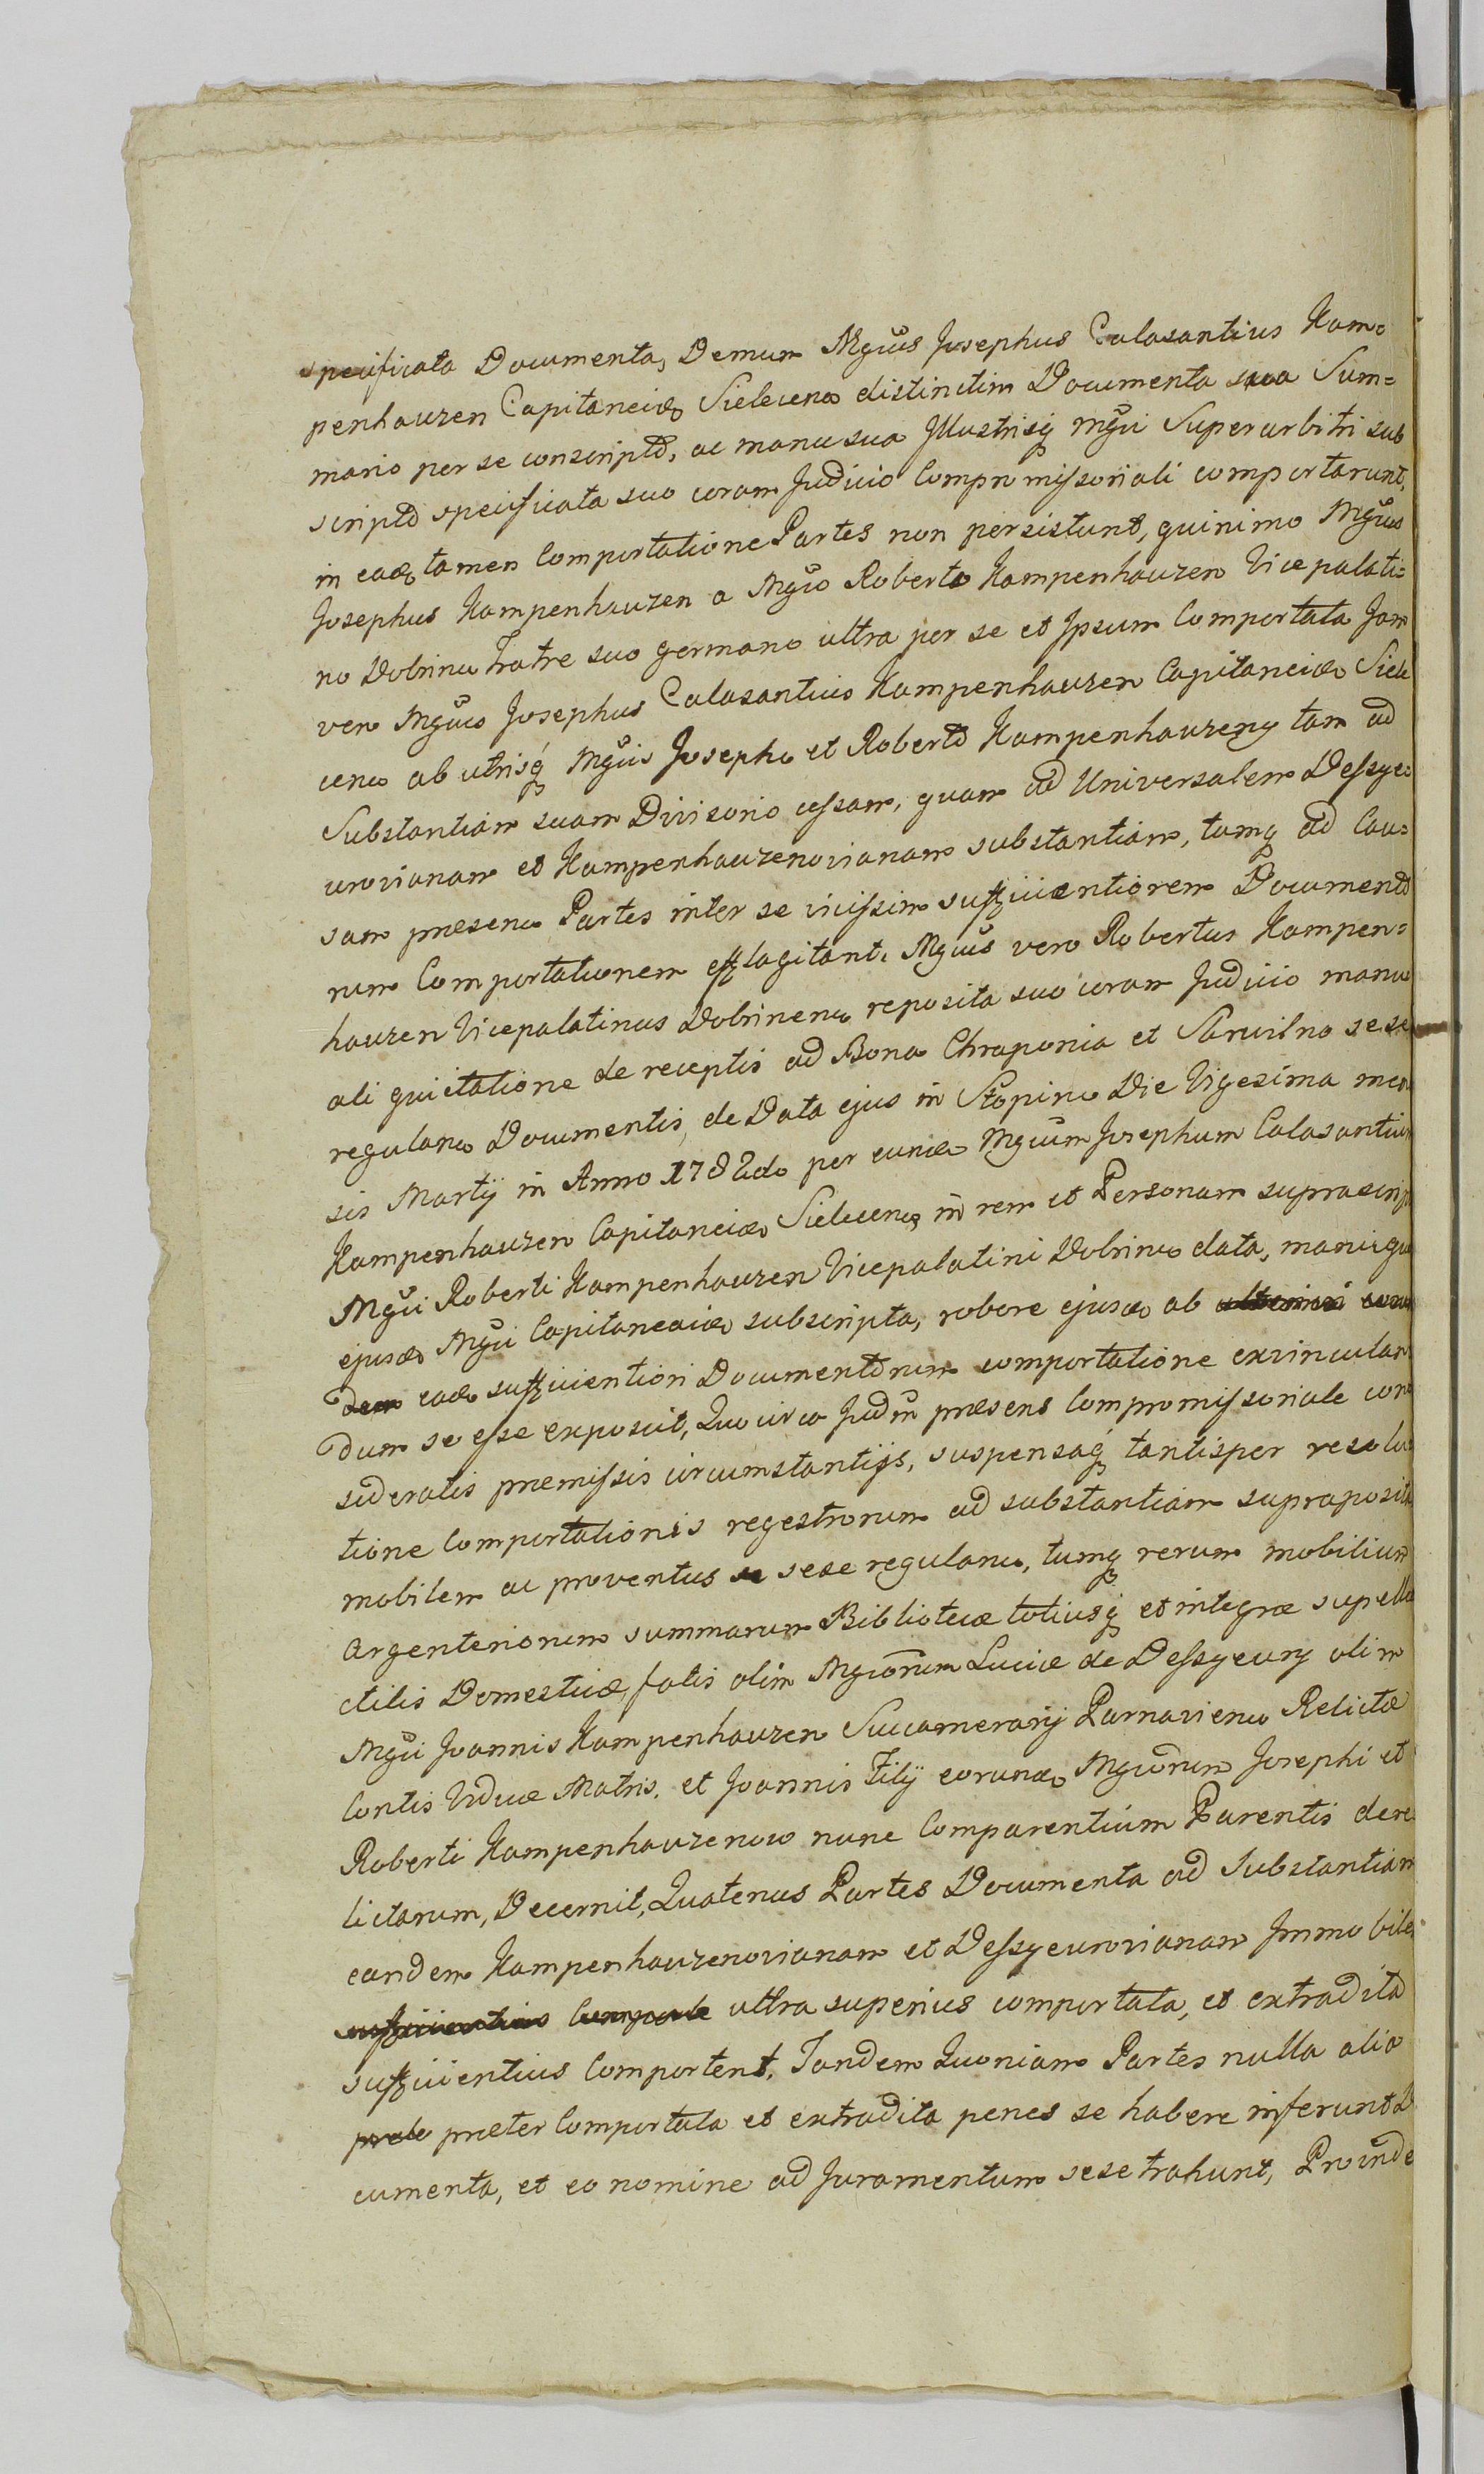 specificata Documenta, Demum Mgcus Josephus Calasantius Kam=
penhauzen Capitaneides Sielecens distinctim Documenta sua Sum=
mario per se conscripto, ac manu sua Illustrisq Mgci Superarbitri sub
scripto specificata suo coram Judicio Compromissoriali comportarunt,
in eade tamen Comportatione Partes non persistunt, quinimo Mgcus
Josephus Kampenhauzen a Mgco Roberto Kampenhauzen Vicepalati=
no Dobrinen Fratre suo germano ultra per se et Ipsum Comportata Jam
vero Mgcus Josephus Calasantius Kampenhauzen Capitaneides Siele
cens ab utrisq Mgcis Josepho et Roberto Kampenhauzeny tam ad
Substantiam suam Divisorio cessam, quam ad Universalem Dessye=
urovianam et Kampenhauzenovianam substantiam, tamq ad Cau=
sam presens Partes inter se vicissim sufficientiorem Documento
rum Comportationem efflagitant. Mgcus vero Robertus Kampen=
hauzen Vicepalatinus Dobrinens reposita suo coram Judicio manu
ali quietatione de receptis ad Bona Chraponia et Sarvilno sese
regulans Documentis, de Data ejus in Stopino Die Vigesima men
sis Martij in Anno 1782do per eunde Mgcum Josephum Calasantium
Kampenhauzen Capitaneides Sielecens in rem et Personam suprascrip
Mgci Roberti Kampenhauzen Vicepalatini Dobrinens data, manuque
ejusde Mgci Capitaneidae subscripta, robore ejusde ab ulteriori
eade sufficientiori Documentorum comportatione exvinculan
dum se esse exposcit, Quocirca Judm præsens Compromissoriale con
sideratis premissis circumstantijs, suspensaq tantisper resolu
tione Comportationis regestrorum ad substantiam supraposita
mobilem ac proventus se sese regulans, tumq rerum mobilium
Argenteriorum summarum Bibliotecæ totiusq et integræ supelle
ctilis Domesticæ, fatis olim Mgcorum Luciæ de Dessyeury olim
Mgci Joannis Kampenhauzen Succamerarij Parnaviens Relictæ
Contis Viduæ Matris, et Joannis Filij eorunde Mgcorum Josephi et
Roberti Kampenhauzenow nunc Comparentium Parentis dere
lictarum, Decernit, Quatenus Partes Documenta ad Substantiam
eandem Kampenhauzenovianam et Dessyeurovianam Immobilem
sufficientius Comporte ultra superius comportata, et extradita
sufficientius Comportent. Tandem Quoniam Partes nulla alia
præter Comportata et extradita penes se habere inferunt Do
cumenta, et eo nomine ad Juramentum sese trahunt, Proinde